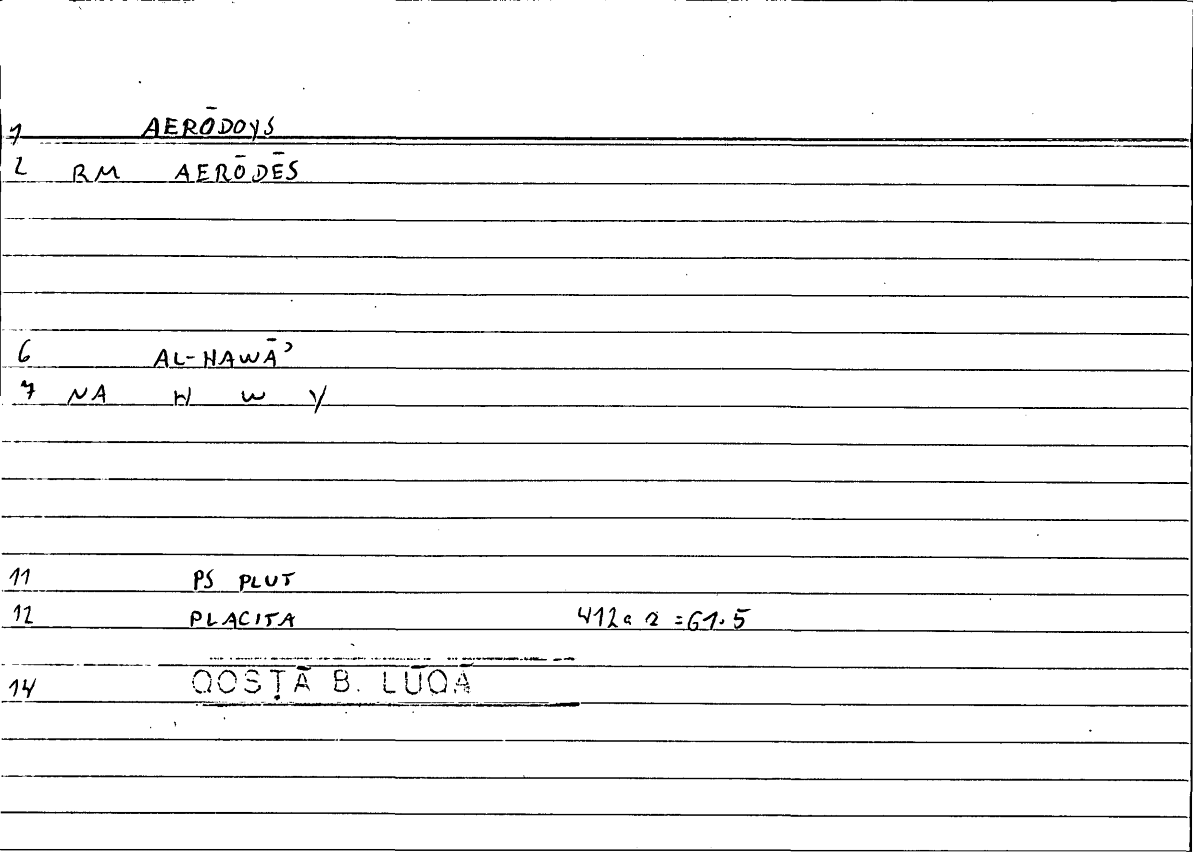 1 AERŌDOYS
2 RM AERŌDĒS
6 AL-HAWĀʾ
7 NA H W Y
11 PS PLUT
12 PLACITA 412a 2 =61.5
14 QOSṬĀ B. LŪQĀ